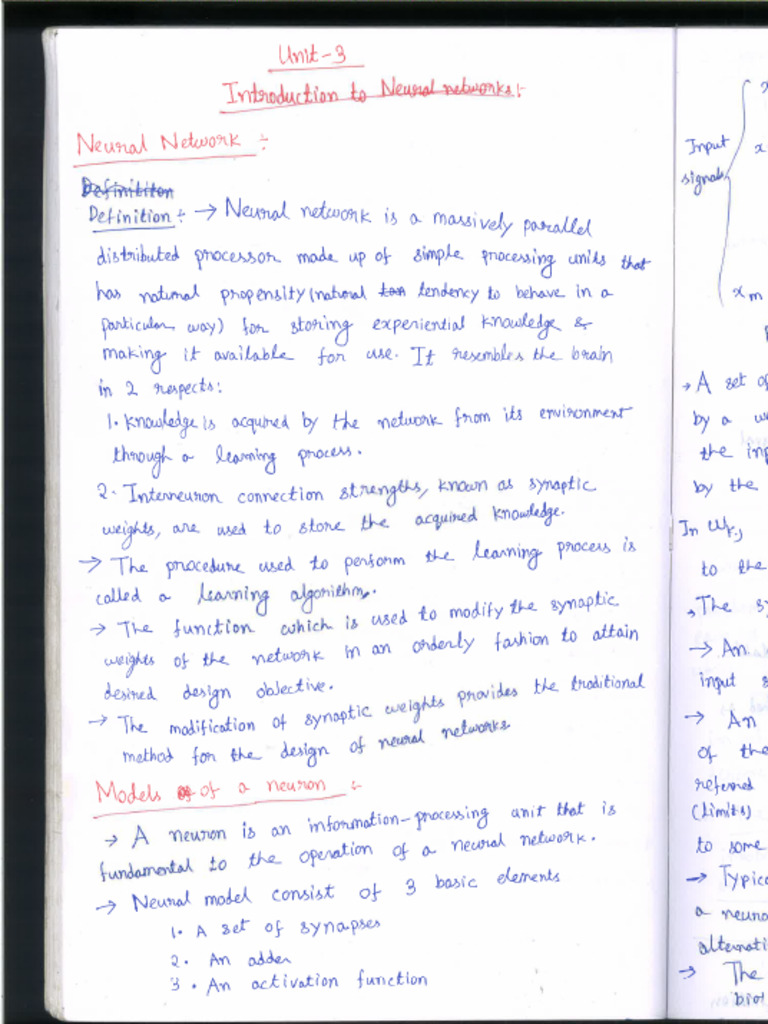 Unit-3
Introduction to Neural networks:-
Neural Network :-
Definititon
Definition :- → Neural network is a massively parallel
distributed processor made up of simple processing units that
has natural propensity (natural tan tendency to behave in a
particular way) for storing experiential knowledge &
making it available for use. It resembles the brain
in 2 respects:
1. Knowledge is acquired by the network from its environment
through a learning process.
2. Interneuron connection strengths, known as synaptic
weights, are used to store the acquired knowledge.
→ The procedure used to perform the learning process is
called a learning algorithm.
→ The function which is used to modify the synaptic
weights of the network in an orderly fashion to attain
desired design objective.
→ The modification of synaptic weights provides the traditional
method for the design of neural networks
Models of of a neuron :-
→ A neuron is an information-processing unit that is
fundamental to the operation of a neural network.
→ Neural model consist of 3 basic elements
1. A set of synapses
2. An adder
3. An activation function
Input
signals
x
x
xm
→ A set of
by a
the
by the
In Wkj
to the
→ The
→ An
input
→ An
of the
referred
(limits)
to some
→
a
→ The